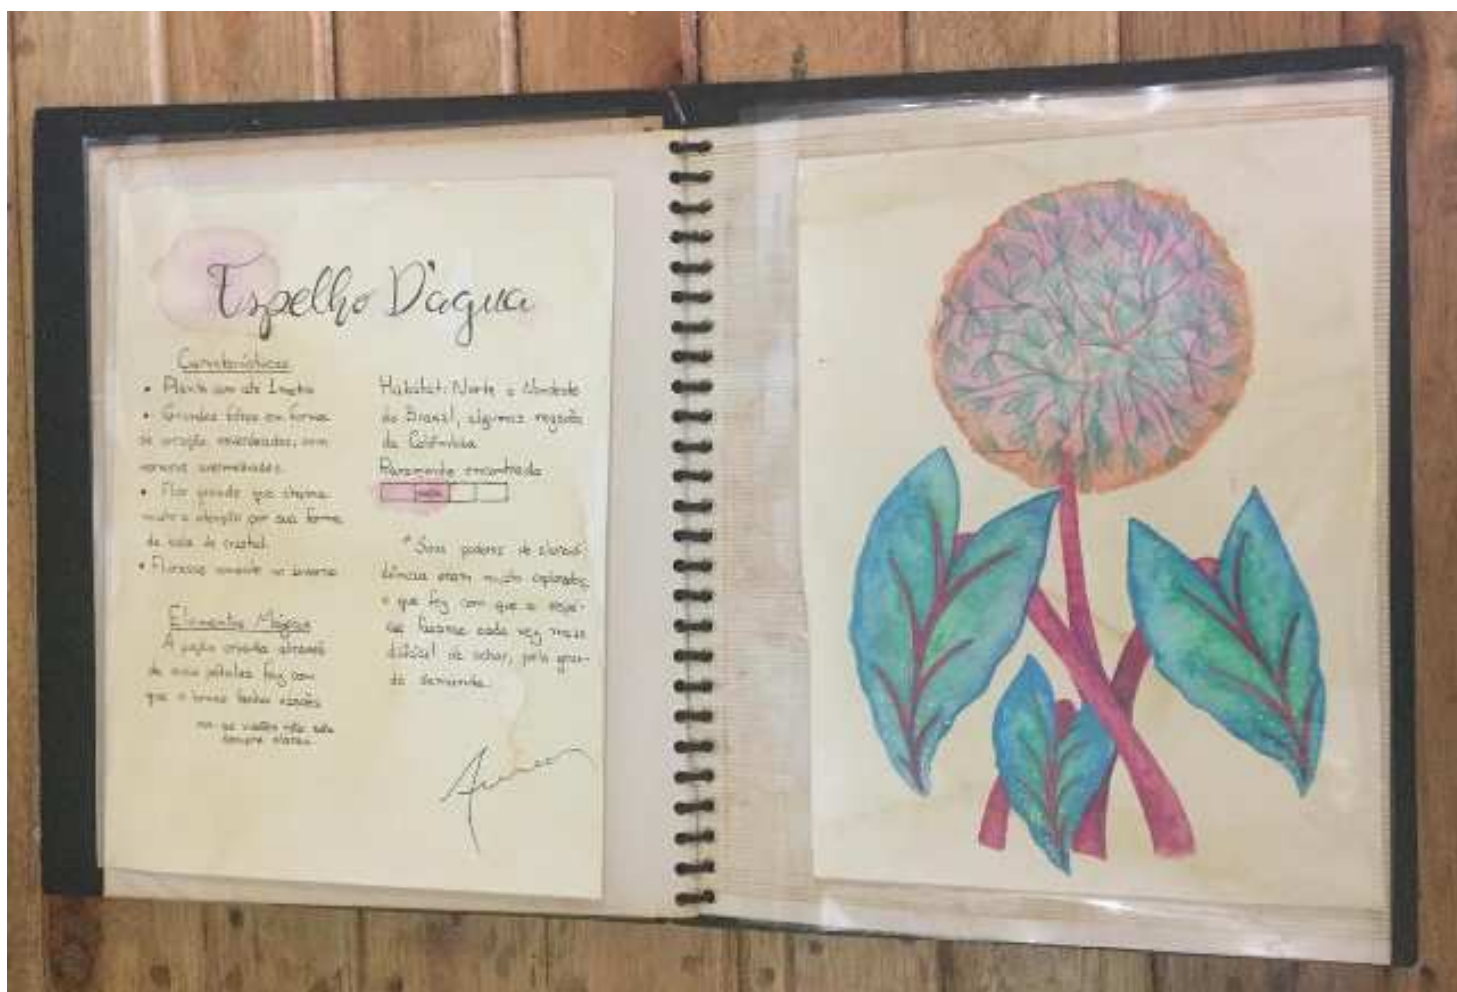 Espelho D'água
Características
• Planta com até 1 metro
• Grandes folhas em forma
de coração esverdeadas, com
nervuras avermelhadas.
• Flor grande que chama
muito a atenção por sua forma
de bola de cristal.
• Floresce somente no inverno
Elementos Mágicos
A poção criada através
de suas pétalas faz com
que o bruxo tenha visões
as visões não são
sempre claras.
Habitat: Norte e Nordeste
do Brasil, algumas regiões
da Colômbia
Raramente encontrada
* Seus poderes de clarividência
eram muito explorados,
o que fez com que a espécie
ficasse cada vez mais
difícil de achar, pela grande
demanda.